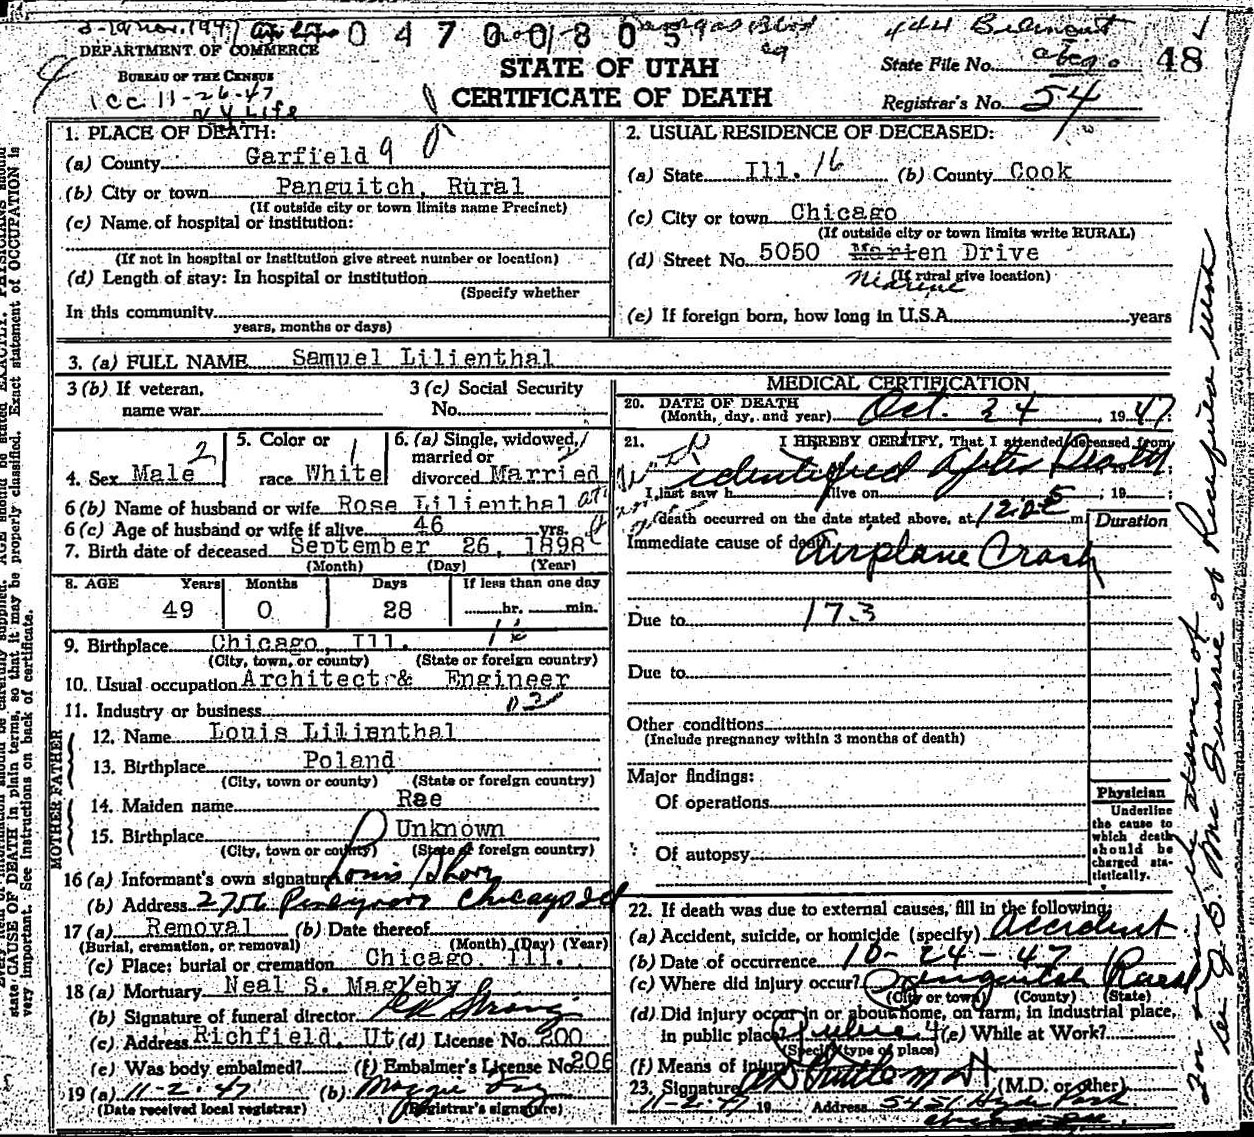 0 4 7 0 0 8 0 5
444 Belmont
DEPARTMENT OF COMMERCE
BUREAU OF THE CENSUS
STATE OF UTAH
CERTIFICATE OF DEATH
State File No.
48
Registrar's No. 54
CC 11-26-47
NY Life
1. PLACE OF DEATH:
(a) County Garfield 9
(b) City or town Panguitch, Rural
(If outside city or town limits name Precinct)
(c) Name of hospital or institution:
(If not in hospital or institution give street number or location)
(d) Length of stay: In hospital or institution
(Specify whether
In this community
years, months or days)
2. USUAL RESIDENCE OF DECEASED:
(a) State Ill. 16 (b) County Cook
(c) City or town Chicago
(If outside city or town limits write RURAL)
(d) Street No. 5050 Marien Drive
(If rural give location)
Marine
(e) If foreign born, how long in U.S.A. years
3. (a) FULL NAME Samuel Lilienthal
3 (b) If veteran,
name war
3 (c) Social Security
No.
4. Sex Male 2
5. Color or
race White 1
6. (a) Single, widowed,
married or
divorced Married
6 (b) Name of husband or wife Rose Lilienthal
6 (c) Age of husband or wife if alive 46 yrs.
7. Birth date of deceased September 26, 1898
(Month) (Day) (Year)
8. AGE Years Months Days If less than one day
49 0 28 hr. min.
9. Birthplace Chicago, Ill.
(City, town, or county) (State or foreign country)
10. Usual occupation Architect & Engineer
11. Industry or business
FATHER
12. Name Louis Lilienthal
13. Birthplace Poland
(City, town or county) (State or foreign country)
MOTHER
14. Maiden name Rae
15. Birthplace Unknown
(City, town or county) (State or foreign country)
16 (a) Informant's own signature Louis
(b) Address 2756 Chicago Ill
17 (a) Removal (b) Date thereof
(Burial, cremation, or removal) (Month) (Day) (Year)
(c) Place: burial or cremation Chicago, Ill.
18 (a) Mortuary Neal S. Magleby
(b) Signature of funeral director
(c) Address Richfield, Ut (d) License No. 200
(e) Was body embalmed? (f) Embalmer's License No. 206
19 (a) 11-2-47 (b) Maggie
(Date received local registrar) (Registrar's signature)
MEDICAL CERTIFICATION
20. DATE OF DEATH
(Month, day, and year) Oct. 24, 1947
21. I HEREBY CERTIFY, That I attended deceased from
identified after Death
I last saw h alive on , 19 ;
death occurred on the date stated above, at m
Duration
Immediate cause of death
Airplane Crash
Due to 173
Due to
Other conditions
(Include pregnancy within 3 months of death)
Major findings:
Of operations
Of autopsy
Physician
Underline
the cause to
which death
should be
charged sta-
tistically.
22. If death was due to external causes, fill in the following:
(a) Accident, suicide, or homicide (specify) Accident
(b) Date of occurrence 10-24-47
(c) Where did injury occur? Panguitch
(City or town) (County) (State)
(d) Did injury occur in or about home, on farm, in industrial place,
in public place? (e) While at Work?
(Specify type of place)
(f) Means of injury
23. Signature (M.D. or other)
11-2-47 19 Address 5451 Hyde Park